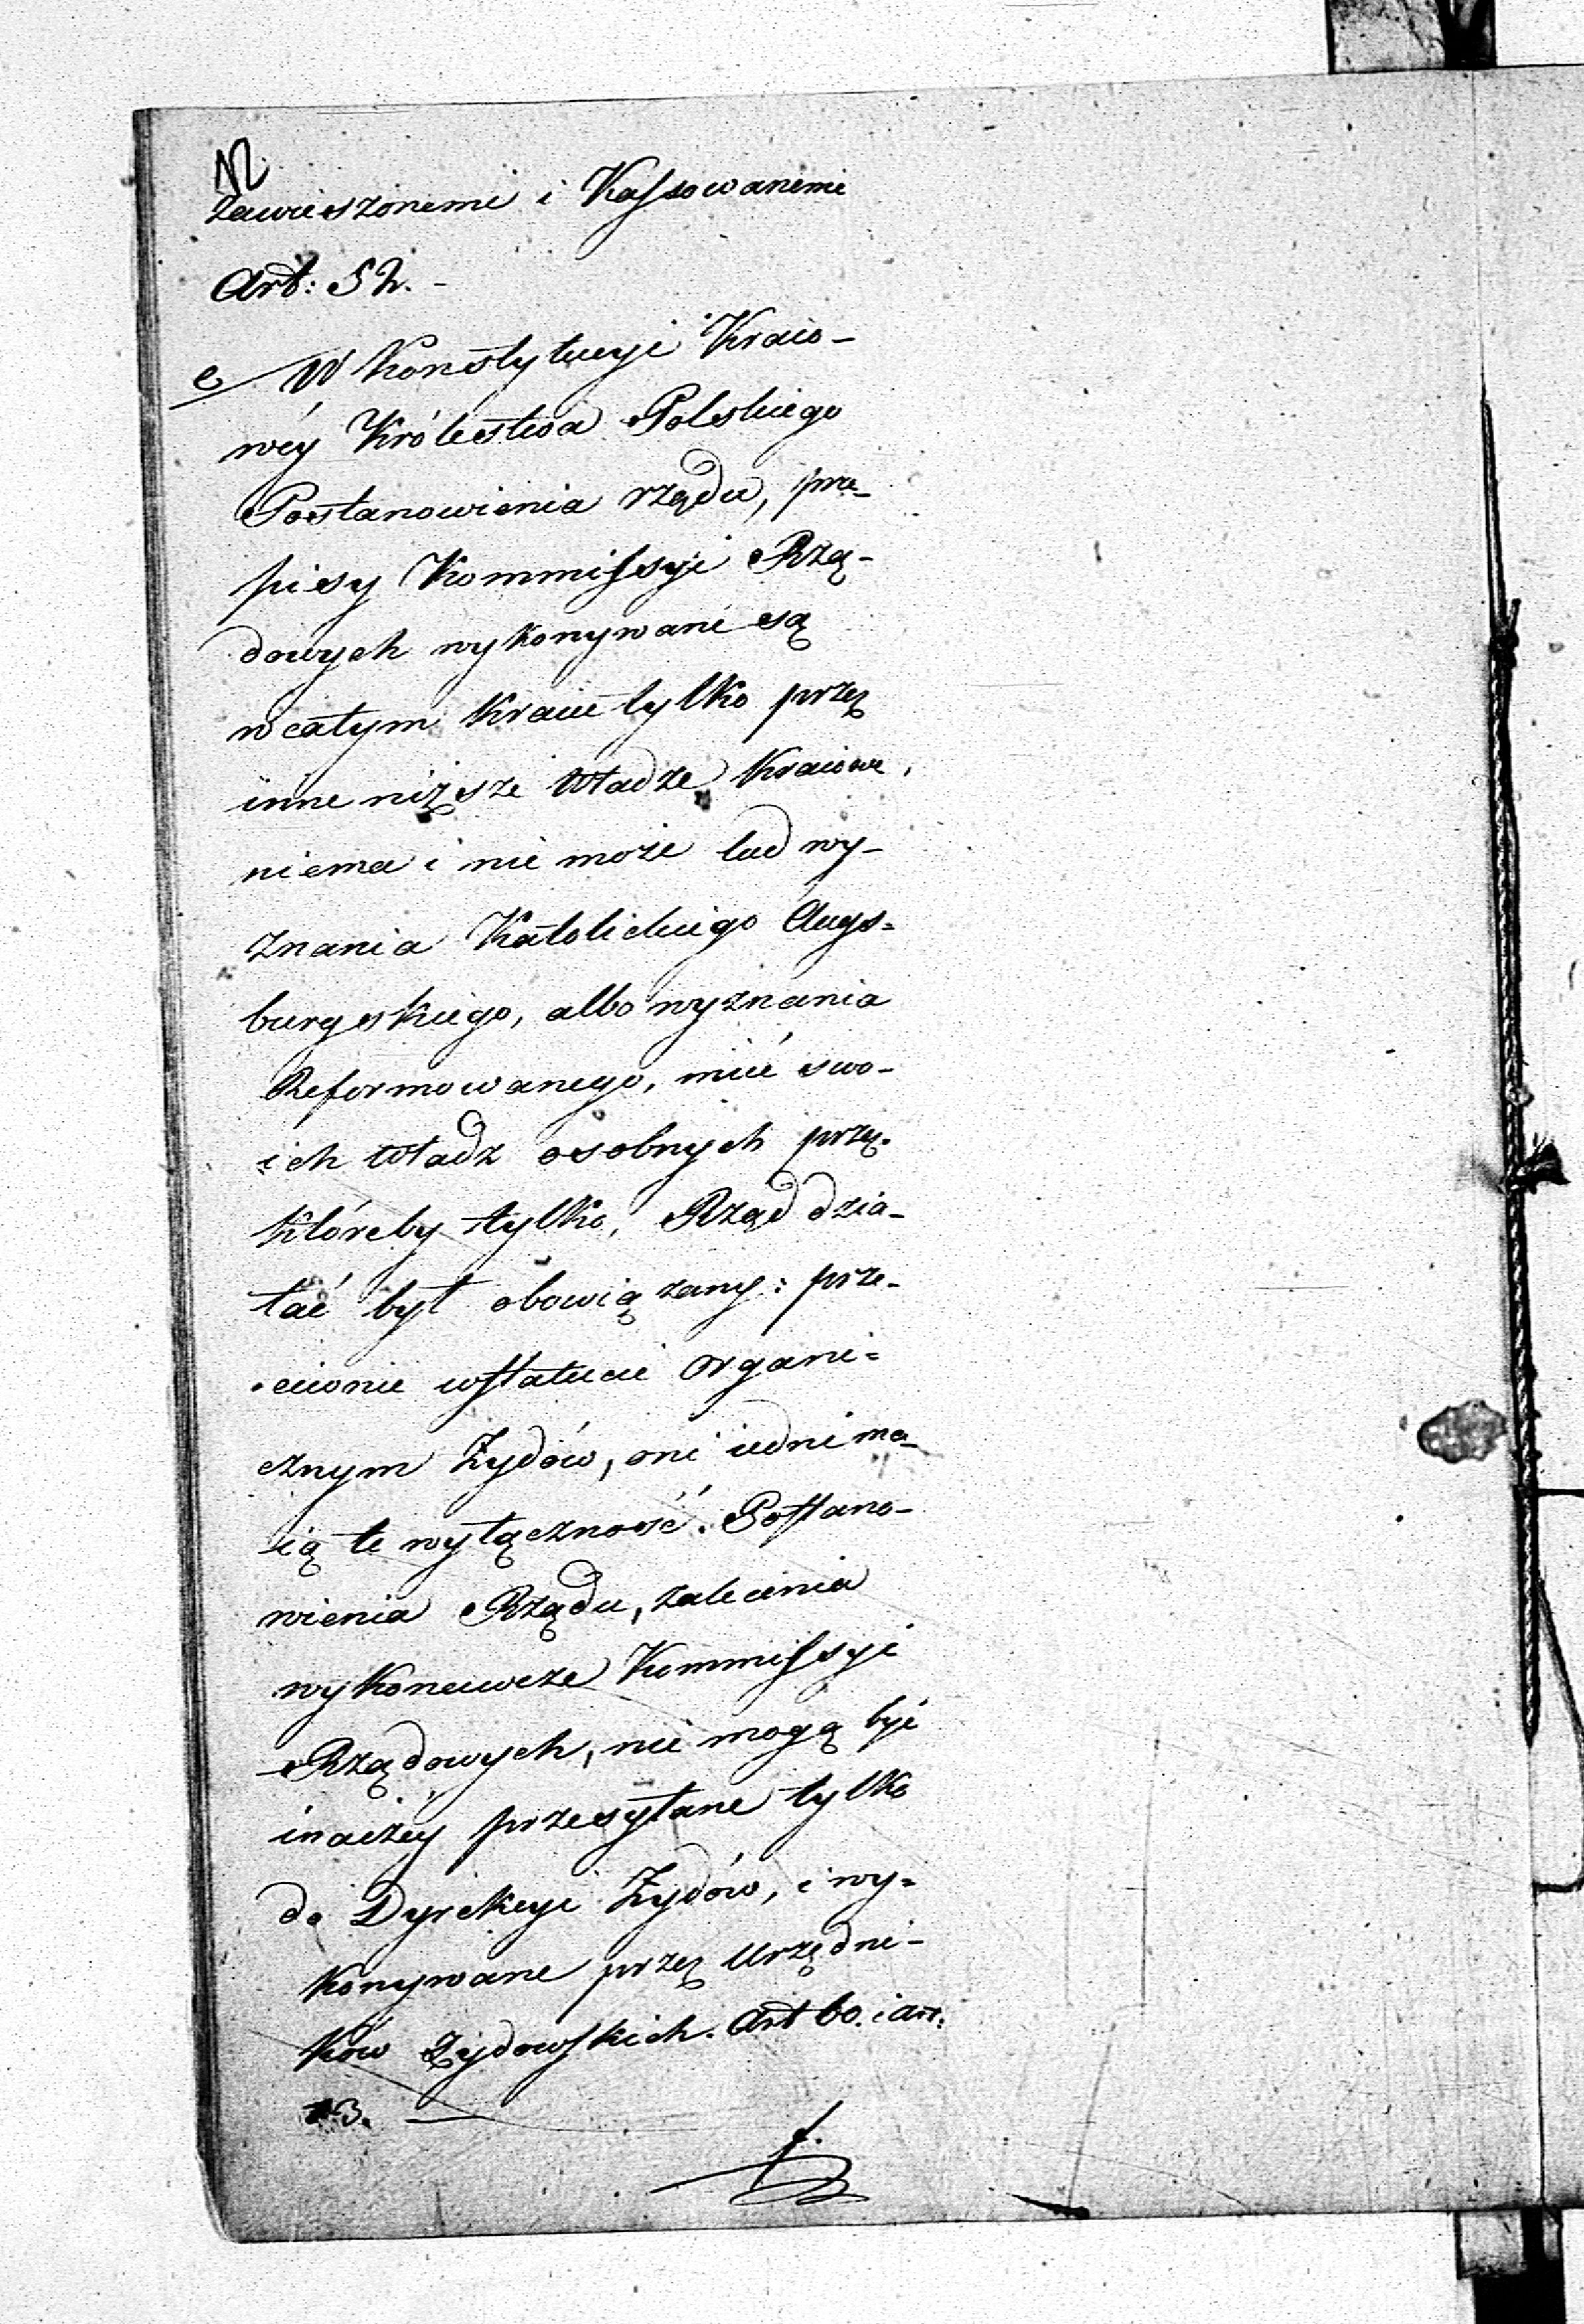 12
zawieszonemi i Kassowanemi
Art: 52. -
e W Konstytucyi Kraio-
wéy Królestwa Polskiego
Postanowienia rządu, prze-
pisy Kommissyi Rzą-
dowych wykonywane są
w całym kraiu tylko przez
inne niższe Władze Kraiowe,
niema i nie może lud wy-
znania Katolickiego Augs=
burgskiego, albo wyznania
Reformowanego, mieć swo-
ich Władz osobnych przez
któreby tylko, Rząd dzia-
łać był obowiązany: prze-
ciwnie w statucie organi=
cznym Żydów, oni iedni ma-
ią te wyłączność. Postano-
wienia Rządu, zalecenia
wykonawcze Kommissyi
Rządowych, nie mogą być
inaczéy przesyłane tylko
do Dyrekcyi Żydów, i wy=
konywane przez Urzędni-
ków Żydowskich. Art 60. i art.
f.